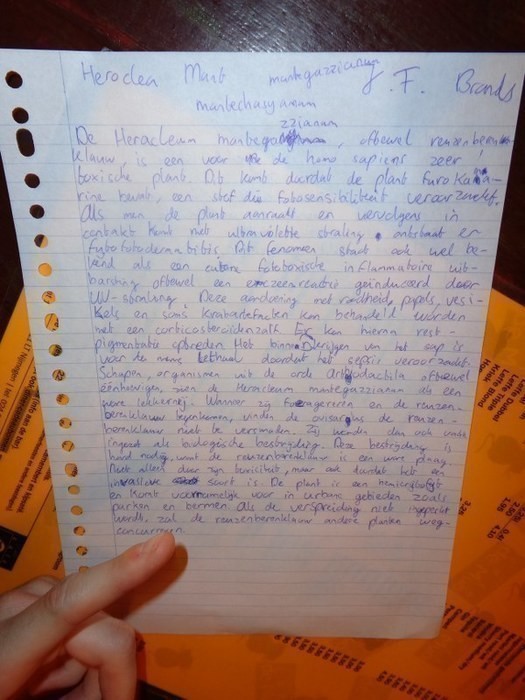 Heroclea Mant mantegazzianum J.F. Brands
mantechasyanum
zzianum
De Heracleum mantega, oftewel reuzenberen-
klauw, is een voor de homo sapiens zeer
toxische plant. Dit komt doordat de plant furokuma-
rine bevat, een stof die fotosensibiliteit veroorzaakt.
Als men de plant aanraakt en vervolgens in
contakt komt met ultraviolette straling, ontstaat er
fytofotodermatitis. Dit fenomeen staat ook wel be-
kend als een cutane fototoxische inflammatoire uit-
barsting oftewel een eczeemreactie geïnduceerd door
UV-straling. Deze aandoening met roodheid, papels, vesi-
kels en soms krabartefacten kan behandeld worden
met een corticosteroïdenzalf. Er kan hierna rest-
pigmentatie optreden. Het binnenkrijgen van het sap is
voor de mens lethaal doordat het sepsis veroorzaakt.
Schapen, organismen uit de orde Artiodactila oftewel
evenhoevigen, zien de Heracleum mantegazzianum als een
ware lekkernij. Wanneer zij fourageren en de reuzen-
berenklauw tegenkomen, vinden de ovisarius de reuzen-
berenklauw niet te versmaden. Zij worden dan ook vaak
ingezet als biologische bestrijding. Deze bestrijding is
hard nodig, want de reuzenberenklauw is een ware plaag.
Niet alleen door zijn toxiciteit, maar ook doordat het een
invasieve soort is. De plant is een hemicryptofyt
en komt voornamelijk voor in urbane gebieden zoals
parken en bermen. Als de verspreiding niet ingeperkt
wordt, zal de reuzenberenklauw andere planten weg-
concurreren.
Leffe Triple
Leffe Blond